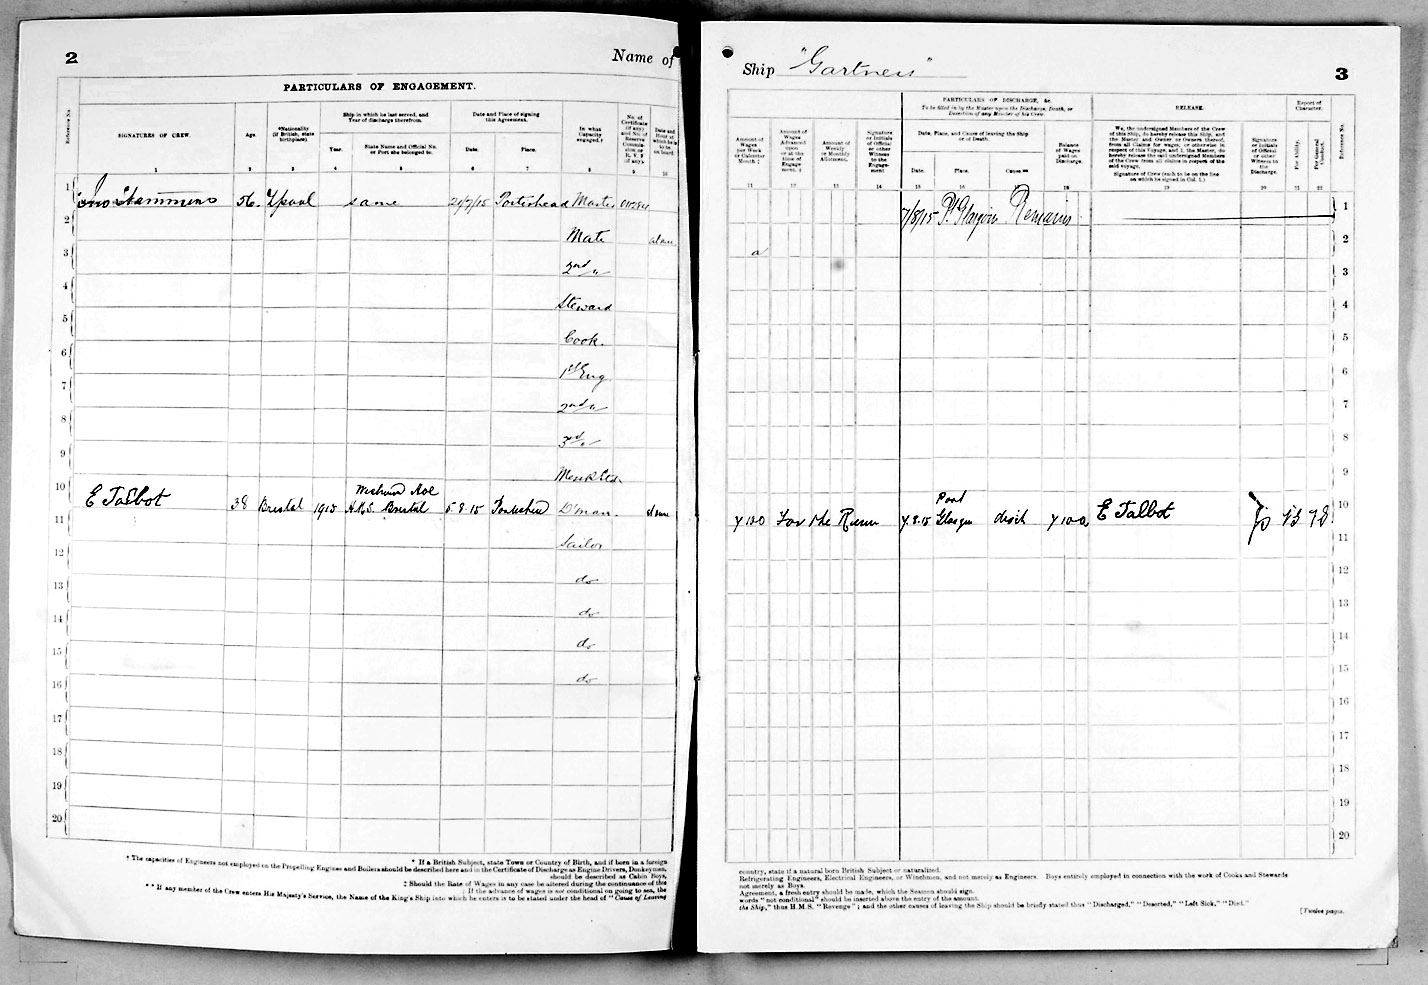 2
Name of
PARTICULARS OF ENGAGEMENT.
Reference No.
SIGNATURES OF CREW.
Age.
*Nationality
(if British, state
birthplace).
Ship in which he last served, and
Year of discharge therefrom.
Year.
State Name and Official No.
or Port she belonged to.
Date and Place of signing
this Agreement.
Date.
Place.
In what
Capacity
engaged.†
No. of
Certificate
(if any)
1 2 3 4 5 6 7 8 9 10
1 56. L'pool same 21/7/15 Portishead Master
2 Mate
3 2nd "
4 Steward
5 Cook.
6 1st Eng
7 2nd "
8 3rd "
9
10 E Talbot 38 Bristol 1915 H.M.S. Bristol 5.8.15 D'man.
11 Sailor
12 do
13 do
14 do
15 do
16
17
18
19
20
* If a British Subject, state Town or Country of Birth, and if born in a foreign
† The capacities of Engineers not employed on the Propelling Engines and Boilers should be described here and in the Certificate of Discharge as Engine Drivers, Donkeymen,
should be described as Cabin Boys,
‡ Should the Rate of Wages in any case be altered during the continuance of this
|| If the advance of wages is not conditional on going to sea, the
** If any member of the Crew enters His Majesty's Service, the Name of the King's Ship into which he enters is to be stated under the head of "Cause of Leaving
Ship "Gartness"
3
PARTICULARS OF DISCHARGE, &c.
To be filled in by the Master upon the Discharge, Death, or
Desertion of any Member of his Crew.
RELEASE.
Report of
Character.
Amount of
Wages
per Week
or Calendar
Month ‡
Amount of
Wages
Advanced
upon
or at the
time of
Engage-
ment. ‖
Amount of
Weekly
or Monthly
Allotment.
Signature
or Initials
of Official
or other
Witness
to the
Engage-
ment
Date, Place, and Cause of leaving the Ship
or of Death.
Date.
Place.
Cause.**
Balance
of Wages
paid on
Discharge.
We, the undersigned Members of the Crew
of this Ship, do hereby release this Ship, and
the Master and Owner or Owners thereof,
from all Claims for wages, or otherwise in
respect of this Voyage, and I, the Master, do
hereby release the said undersigned Members
of the Crew from all claims in respect of the
said voyage.
Signature of Crew (each to be on the line
on which he signed in Col. 1.)
Signature
or Initials
of Official
or other
Witness to
the
Discharge.
For Ability.
For General
Conduct.
Reference No.
11 12 13 14 15 16 17 18 19 20 21 22
7/8/15 Pt Glasgow Remains 1
2
3
4
5
6
7
8
9
Port
7.10.0 For the Run 7.8.15 Glasgow disch 7.10.0 E Talbot 10
11
12
13
14
15
16
17
18
19
20
country, state if a natural born British Subject or naturalized.
Refrigerating Engineers, Electrical Engineers, or Winchmen, and not merely as Engineers. Boys entirely employed in connection with the work of Cooks and Stewards
not merely as Boys.
Agreement, a fresh entry should be made, which the Seamen should sign.
words "not conditional" should be inserted above the entry of the amount.
the Ship," thus H.M.S. "Revenge"; and the other causes of leaving the Ship should be briefly stated thus "Discharged," "Deserted," "Left Sick," "Died."
[Twelve pages.